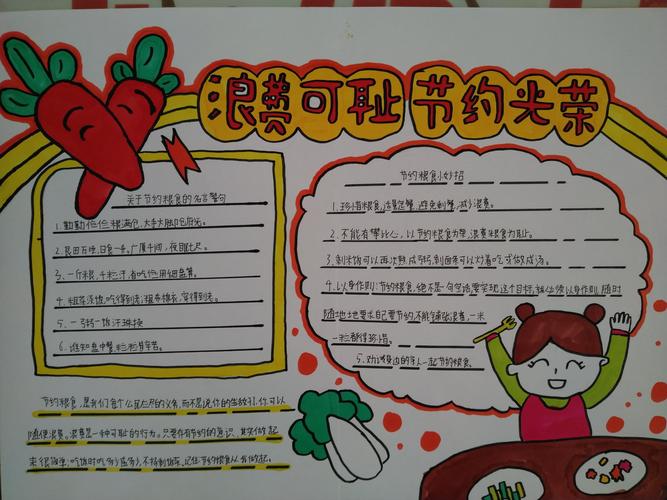 浪费可耻 节约光荣
关于节约粮食的名言警句
1.勤勤俭俭粮满仓,大手大脚仓底光。
2.良田万顷,日食一升。广厦千间,夜眠七尺。
3.一斤粮,千粒汗,省吃俭用细盘算。
4.粗茶淡饭,吃得到老;粗布棉衣,穿得到老。
5.一粥一饭汗珠换
6.谁知盘中餐,粒粒皆辛苦。
节约粮食小妙招
1.珍惜粮食,适量定餐,避免剩餐,减少浪费。
2.不能有攀比心,以节约粮食为荣,浪费粮食为耻。
3.剩米饭可以再次熬成粥,剩面条可以炒着吃或做成汤。
4.以身作则:节约粮食,绝不是一句空话要实现这个目标,就必须以身作则,随时
随地地要求自己要节约,不能铺张浪费,一米
一粒都得珍惜。
5.劝诫身边的亲人一起节约粮食。
节约粮食,是我们每个公民应尽的义务,而不是说你的生活好了,你可以
随便浪费。浪费是一种可耻的行为。只要存有节约的意识,其实做起
来很简单:吃饭时吃多少盛多少,不扔剩饭菜,记住节约粮食从我做起。